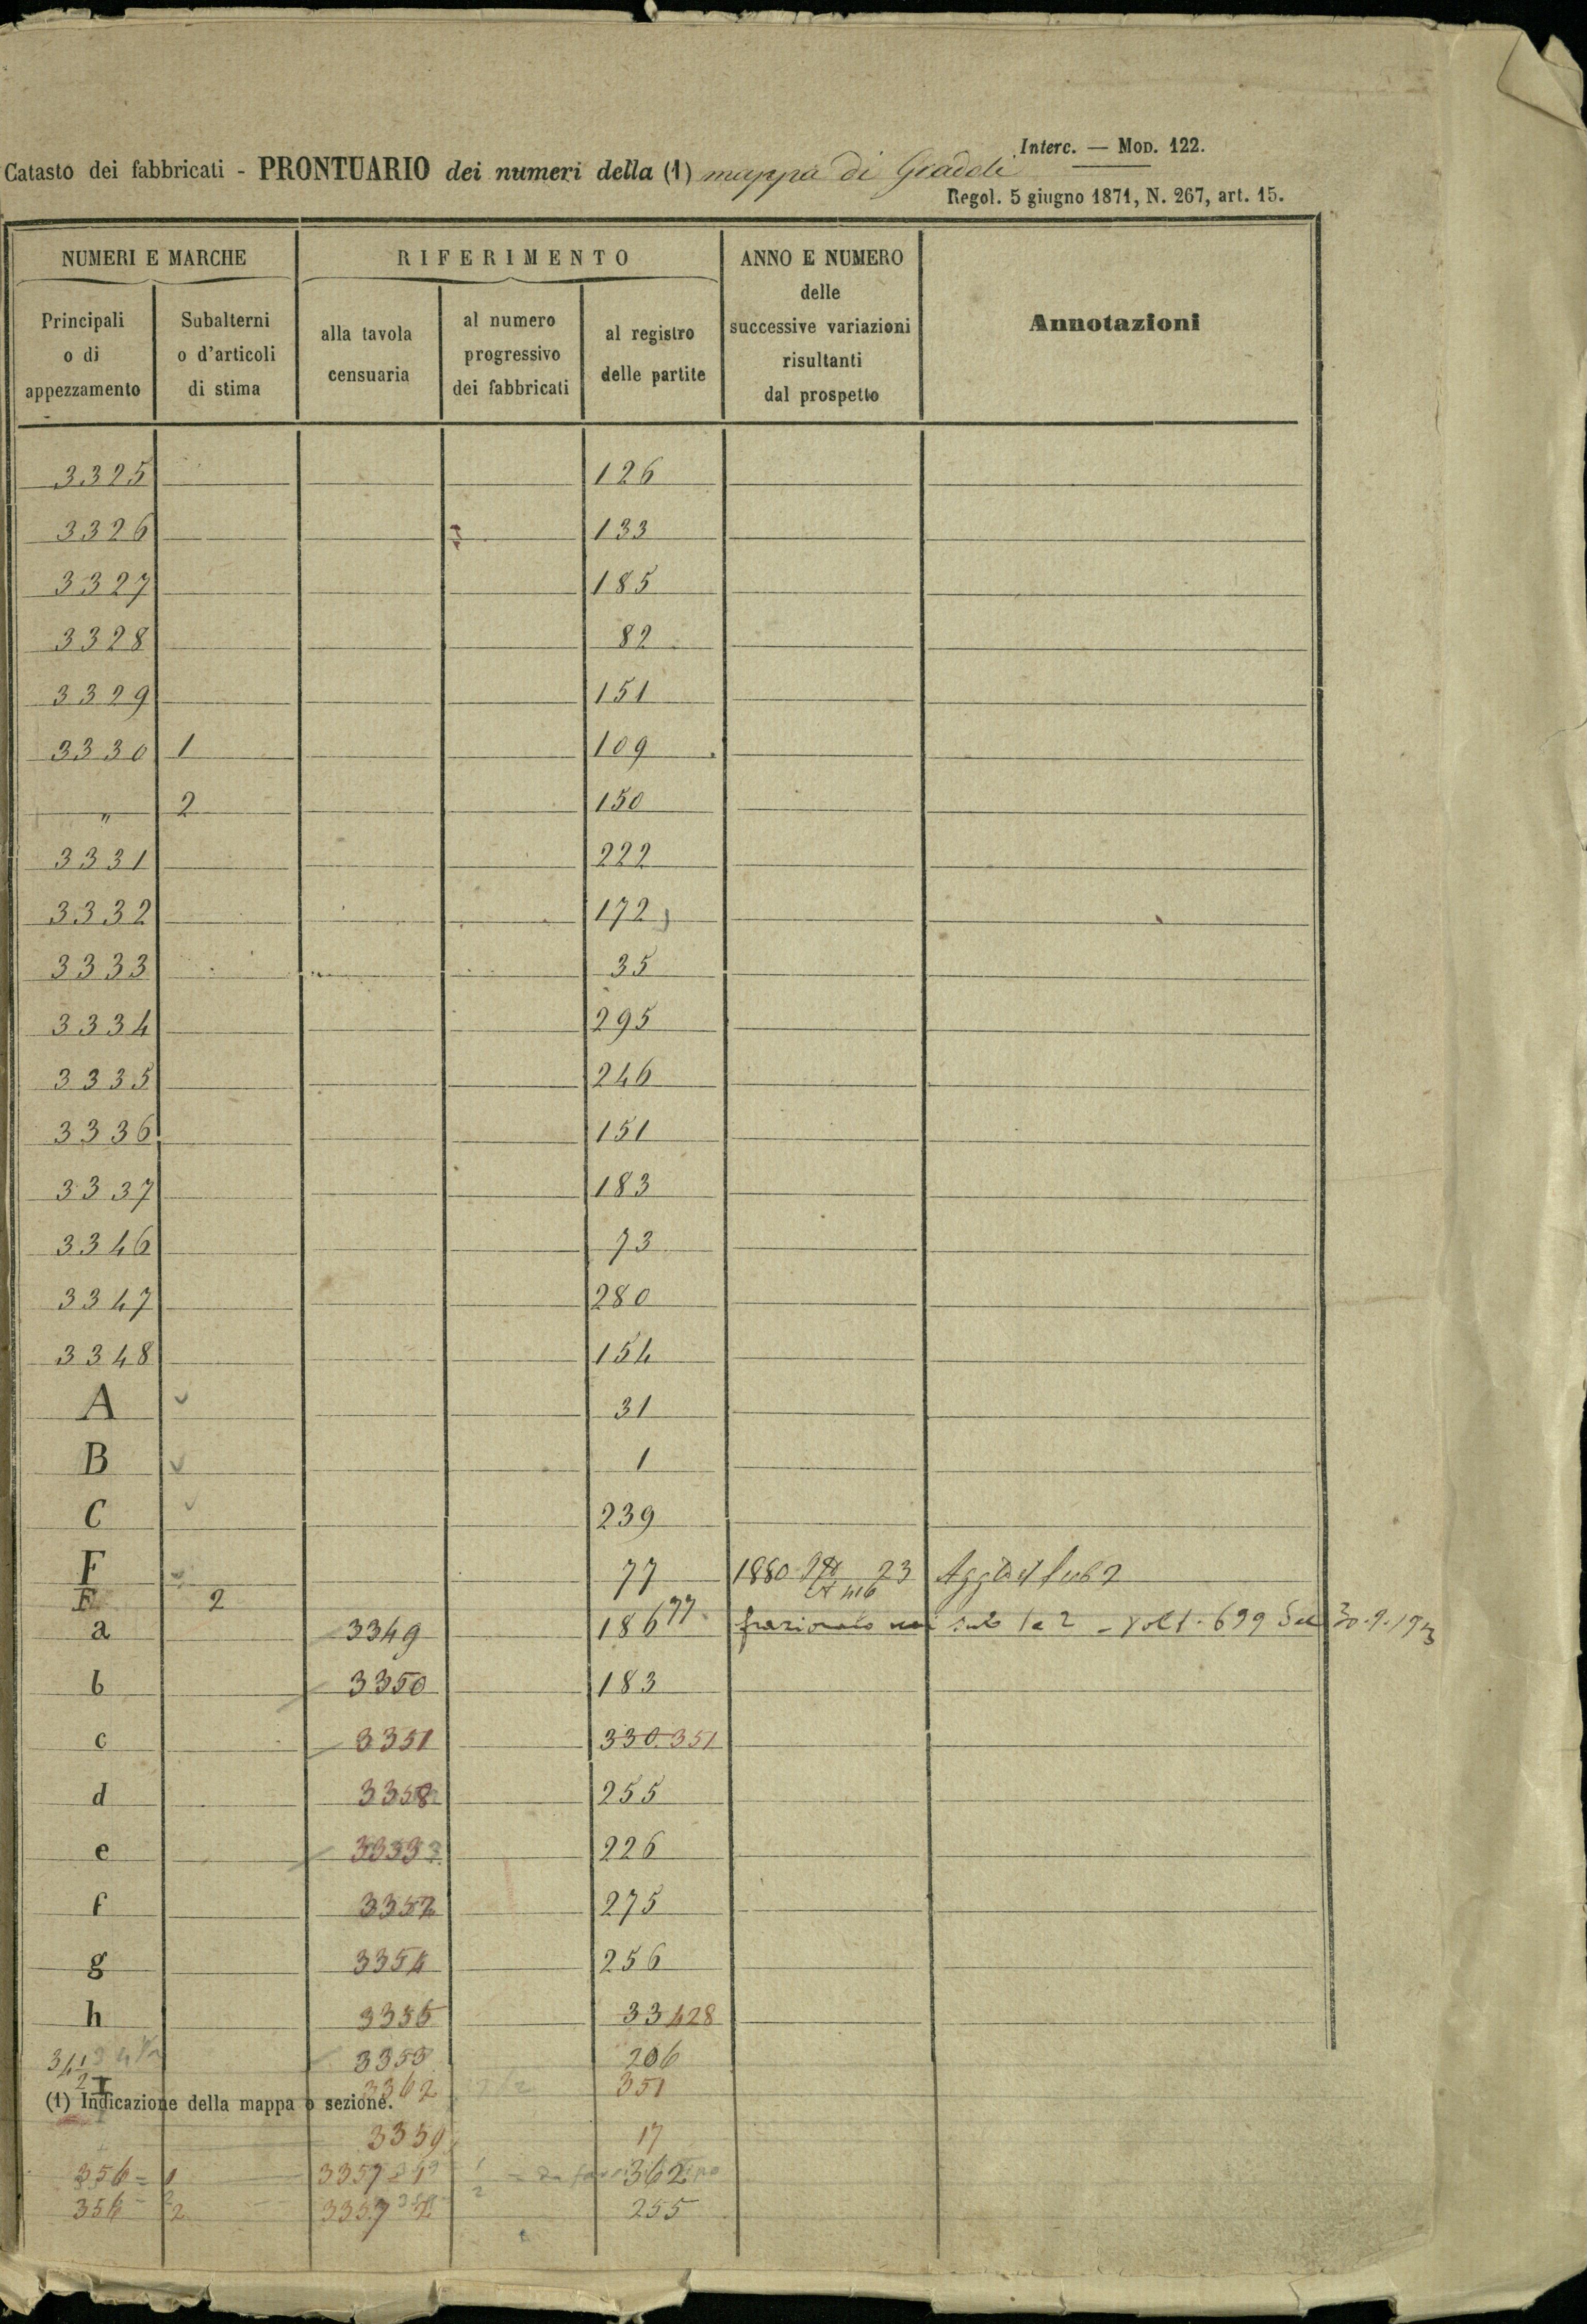 Interc. — Mod. 122.
Catasto dei fabbricati - PRONTUARIO dei numeri della (1) mappa di Gradoli
Regol. 5 giugno 1871, N. 267, art. 15.
NUMERI E MARCHE RIFERIMENTO ANNO E NUMERO delle successive variazioni risultanti dal prospetto Annotazioni
Principali o di appezzamento Subalterni o d'articoli di stima alla tavola censuaria al numero progressivo dei fabbricati al registro delle partite
3325 126
3326 133
3327 185
3328 82
3329 151
3330 1 109
" 2 150
3331 222
3332 172
3333 35
3334 295
3335 246
3336 151
3337 183
3346 73
3347 280
3348 154
A 31
B 1
C 239
F 77 1880 23 sub 2
F 2 77
a 3349 186 frazionato sub 1 e 2 - Volt. 699
b 3350 183
c 3351 330 351
d 3358 255
e 3353 226
f 3352 275
g 3354 256
h 3355 33 428
3353 206
I 3362 351
(1) Indicazione della mappa o sezione.
3359 17
356 = 1 3357 1 362
356 2 3357 2 255